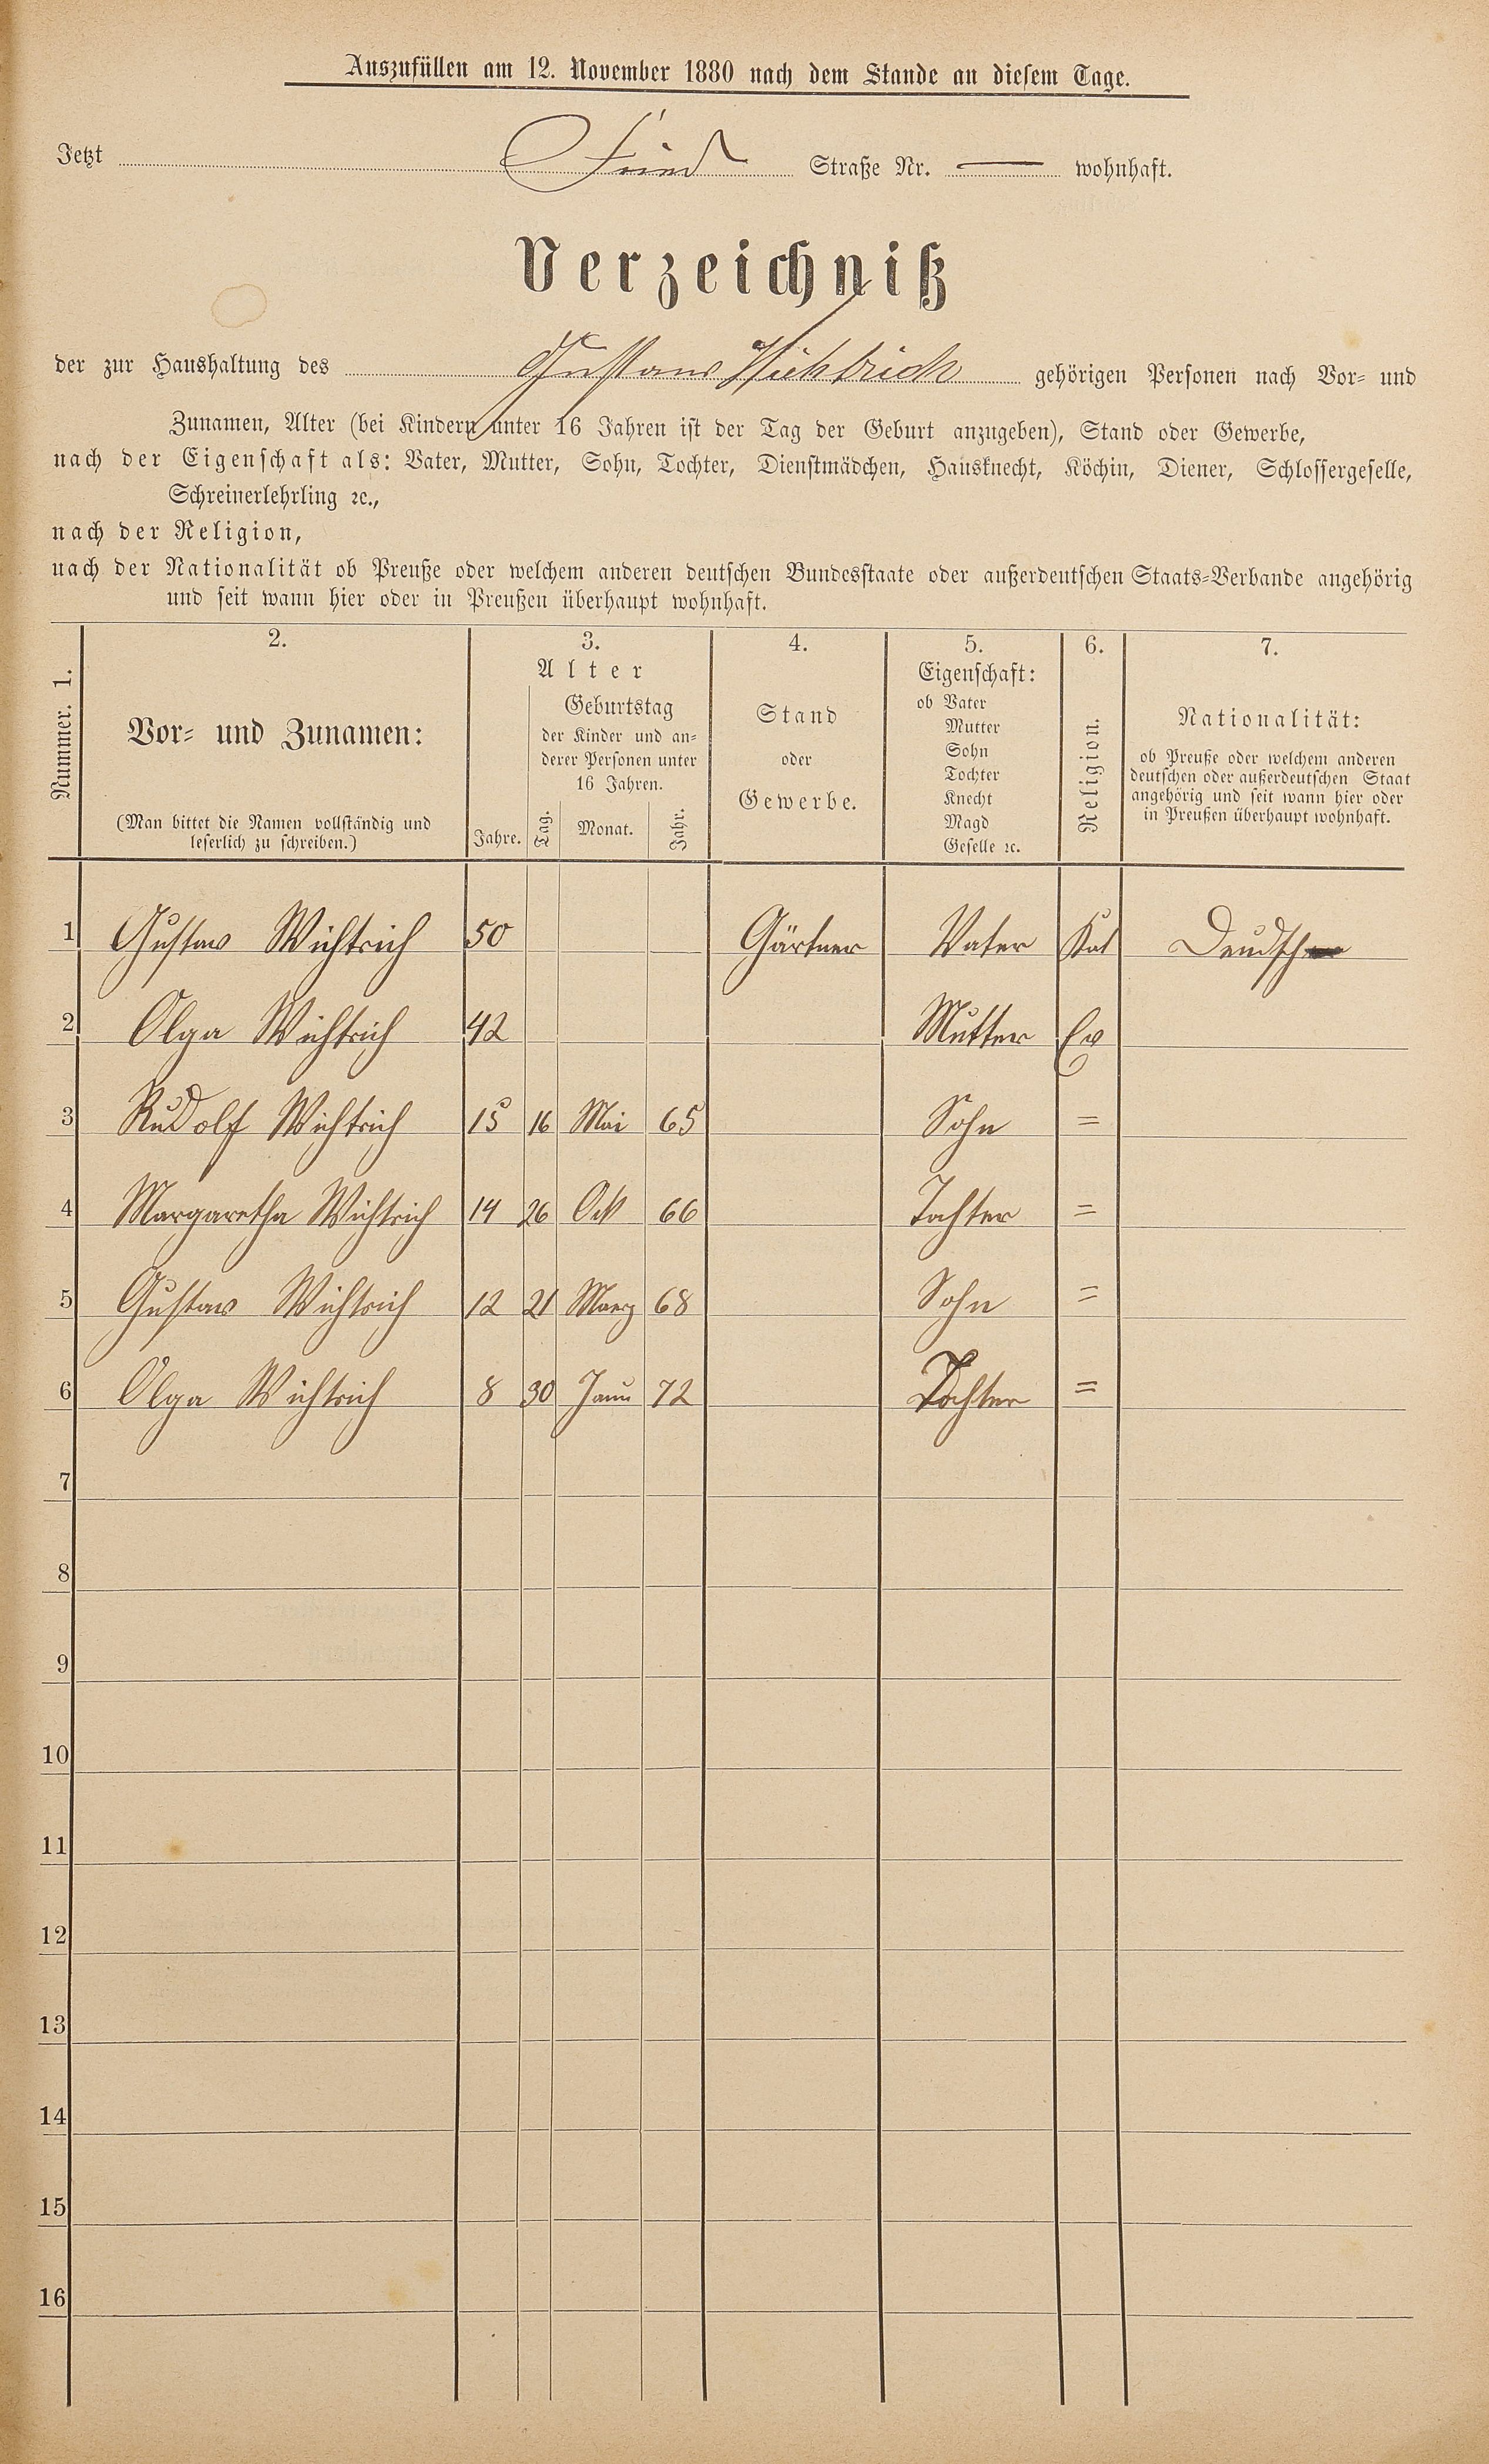 Auszufüllen am 12. November 1880 nach dem Stande an diesem Tage.
Jetzt Straße Nr. — wohnhaft.
Verzeichniß
der zur Haushaltung des Gustav Wichtrich gehörigen Personen nach Vor- und
Zunamen, Alter (bei Kindern unter 16 Jahren ist der Tag der Geburt anzugeben), Stand oder Gewerbe,
nach der Eigenschaft als: Vater, Mutter, Sohn, Tochter, Dienstmädchen, Hausknecht, Köchin, Diener, Schlossergeselle,
Schreinerlehrling ꝛc.,
nach der Religion,
nach der Nationalität ob Preuße oder welchem anderen deutschen Bundesstaate oder außerdeutschen Staats-Verbande angehörig
und seit wann hier oder in Preußen überhaupt wohnhaft.
Nummer. 1.
2.
Vor- und Zunamen:
(Man bittet die Namen vollständig und
leserlich zu schreiben.)
3.
Alter
Jahre.
Geburtstag
der Kinder und an-
derer Personen unter
16 Jahren.
Tag. Monat. Jahr.
4.
Stand
oder
Gewerbe.
5.
Eigenschaft:
ob Vater
Mutter
Sohn
Tochter
Knecht
Magd
Geselle ꝛc.
6.
Religion.
7.
Nationalität:
ob Preuße oder welchem anderen
deutschen oder außerdeutschen Staat
angehörig und seit wann hier oder
in Preußen überhaupt wohnhaft.
1 Gustav Wichtrich 50 Gärtner Vater Kat Deudsch
2 Olga Wichtrich 42 Mutter Ev
3 Rudolf Wichtrich 15 16 Mai 65 Sohn =
4 Margaretha Wichtrich 14 26 Okt 66 Tochter =
5 Gustav Wichtrich 12 21 Maerz 68 Sohn =
6 Olga Wichtrich 8 30 Janu 72 Tochter =
7
8
9
10
11
12
13
14
15
16